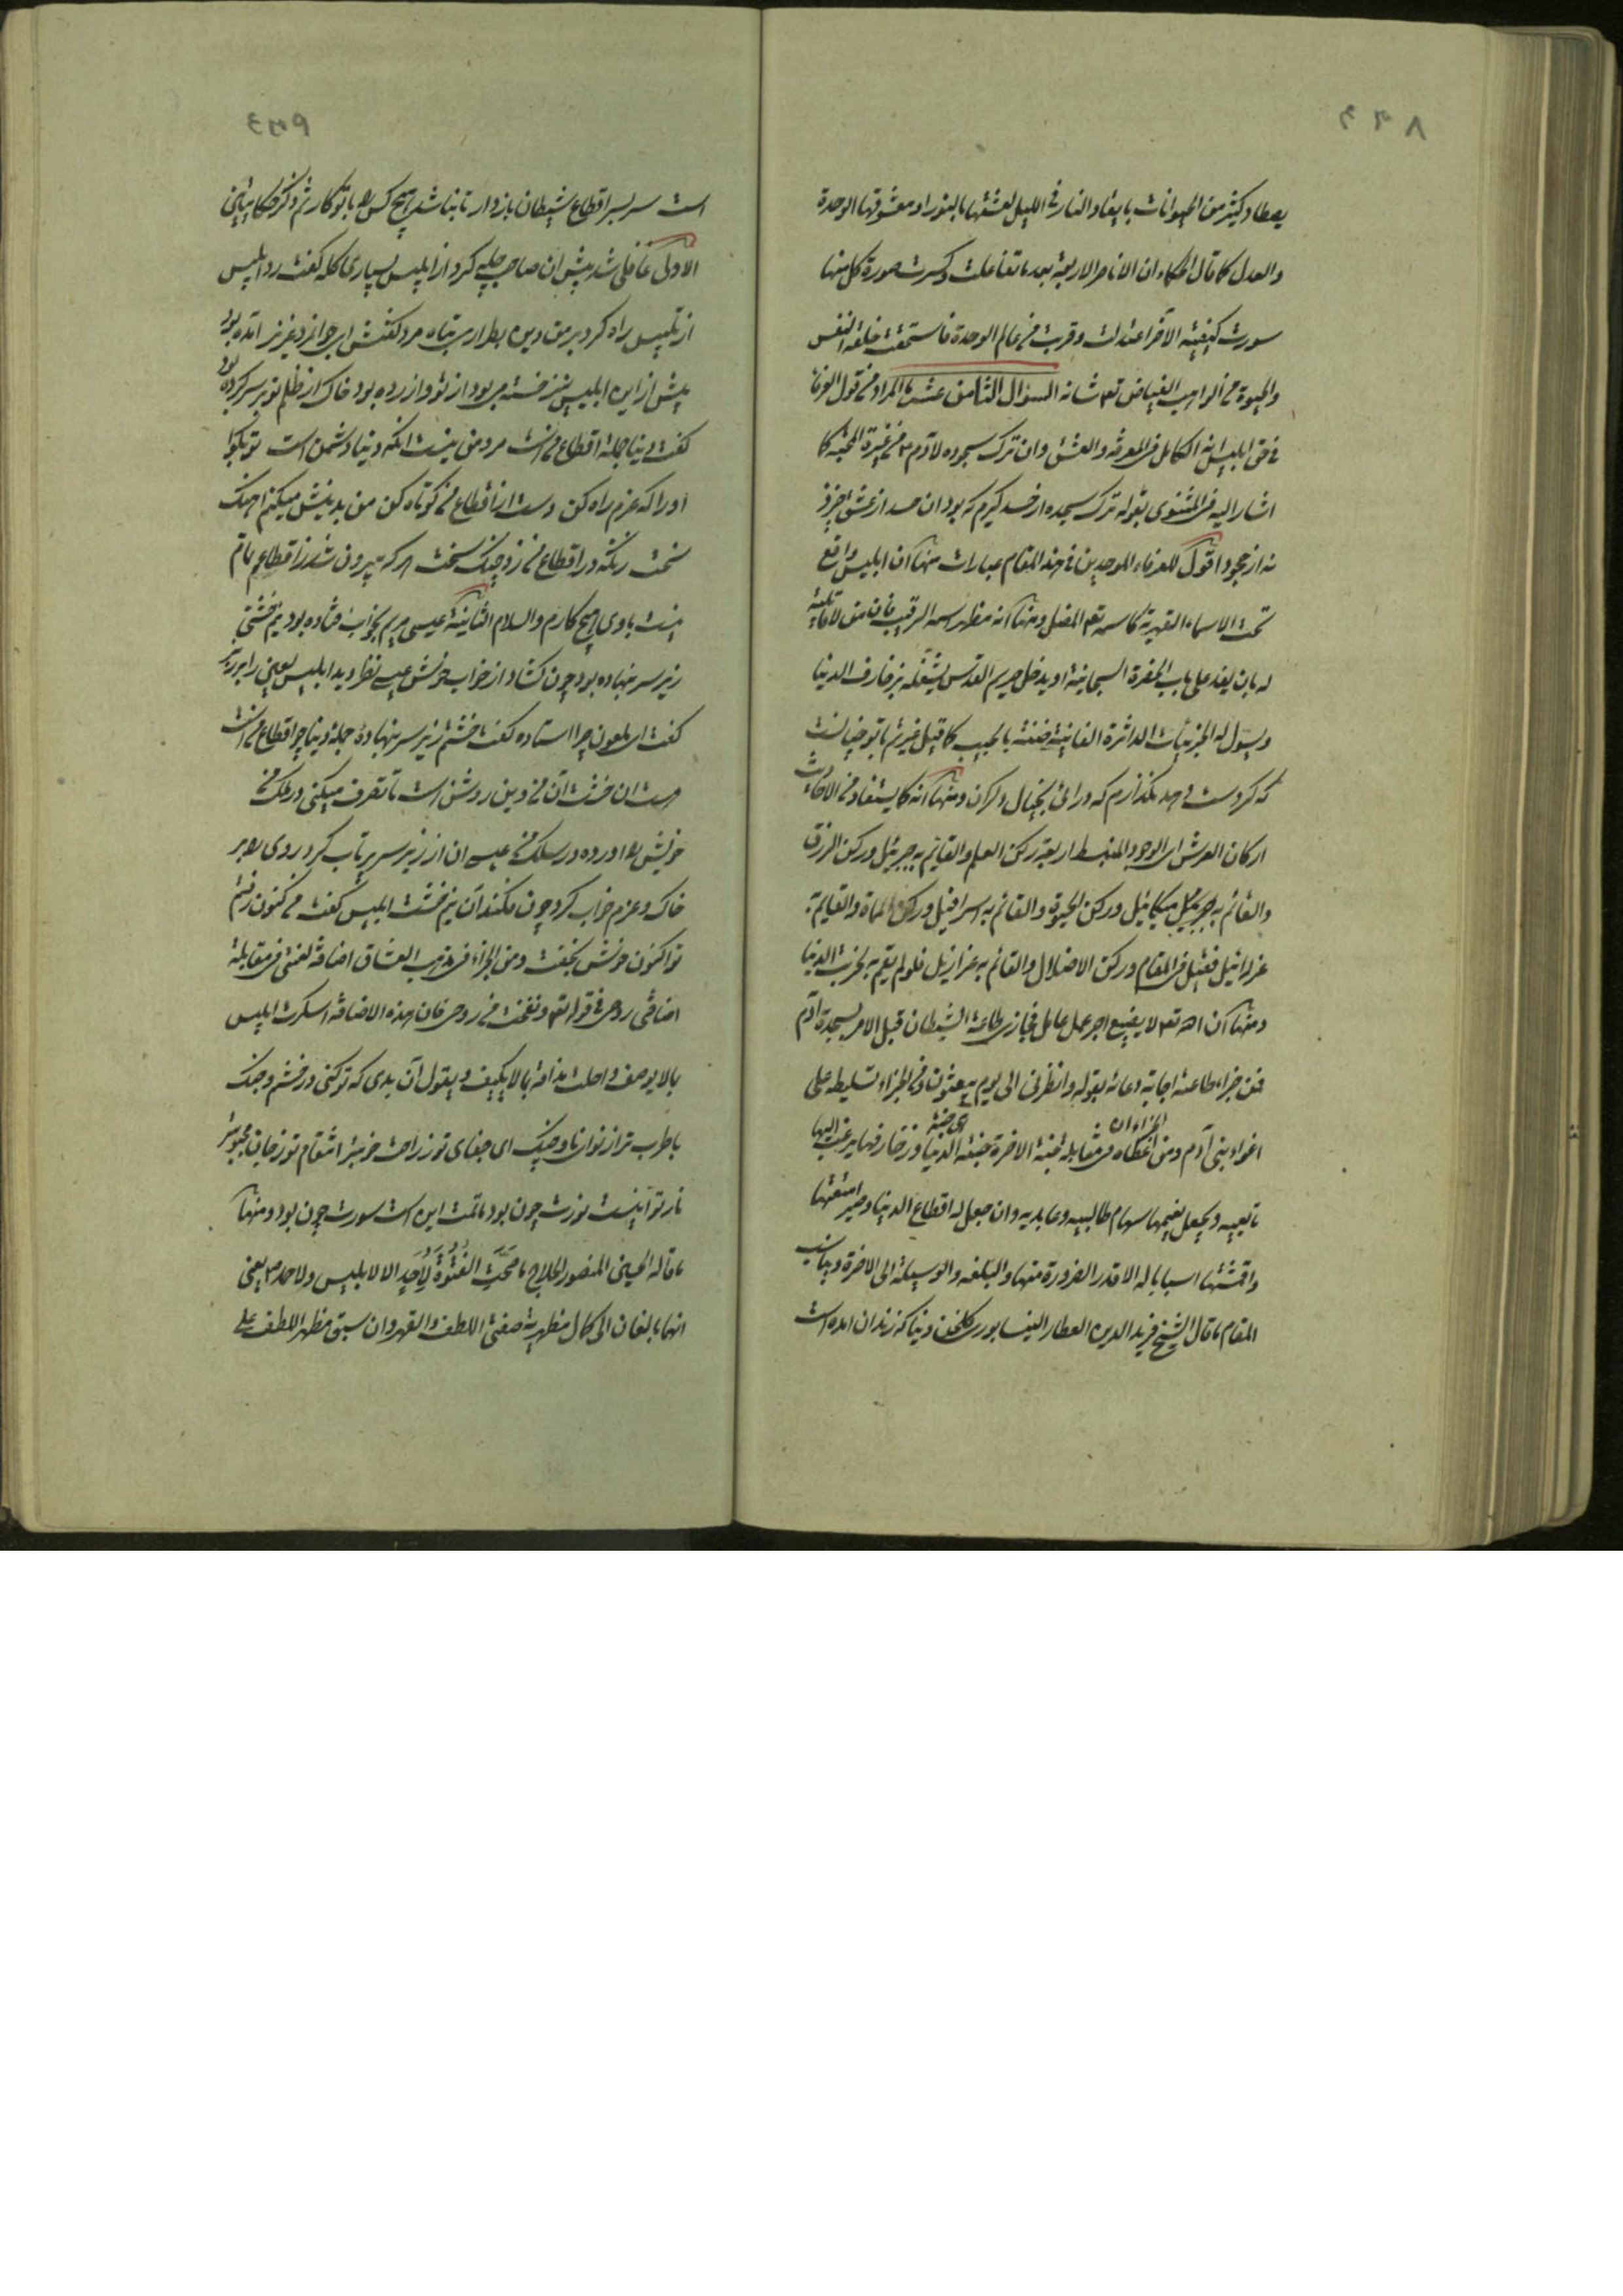 يصطاد كثير من الحيوانات بايقاد النار فى الليل لعشقها بالنور او معشوقها الوحدة
والعدل كما قال الحكماء ان الاربعة بعد ما تفاعلت وكسرت صورة كل منها
سورت كيفية الآخر اعتدلت وقربت من عالم الوحدة فاستحقت خلعة النفس
والحيوة من الواهب الفياض تع شانه السؤال الثامن عشر ما المراد من قول العرفا
فى حق ابليس انه الكامل فى المعرفة والعشق وان ترك سجوده لآدم من غيرة المحبة كما
اشار اليه فى المثنوى بقوله ترك سجده از حسد كيرم كه بود ان حسد از عشق خيزد
نه از جحود اقول للعرفاء الموحدين فى هذا المقام عبارات منها ان ابليس واقع
تحت الاسماء القهرية كاسمه تع المضل ومنها انه مظهر اسمه الرقيب فان من لا قابلية
له بان يقف على باب الحضرة السبحانية او يدخل حريم القدس يشغله بزخارف الدنيا
ويسول له الجزئيات الداثرة الفانية ضنة بالحبيب كما قيل غيرتم با تو چنانست
كه كر دست دهد نكذارم كه درائى بخيال دكران ومنها انه كما يستفاد من الاحاديث
اركان العرش اى الوجود المنبسط اربعة ركن العلم والقائم به جبرئيل وركن الرزق
والقائم به ميكائيل وركن الحيوة والقائم به اسرافيل وركن المماة والقائم به
عزرائيل فقيل فى المقام وركن الاضلال والقائم به عزازيل فلو لم يقم به لخربت الدنيا
ومنها ان الله تع لا يضيع اجر عمل عامل فجازى طاعة الشيطان قبل الامر بسجدة آدم
فمن جزاء طاعته اجابة دعائه بقوله وانظرنى الى يوم يبعثون ومن الجزاء تسليطه على
اغواء بنى آدم ومن الجزاء ان اعطاه فى مقابلة جنة الاخرة جنة الدنيا وزخارفها يرغب اليها
تابعيه ويجعل نعيمها سهام طالبيه وعابديه وان جعل له اقطاع الدنيا وصير امتعتها
واقمشتها اسبابا له الا قدر الضرورة منها والبلغه والوسيلة الى الاخرة ويناسب
المقام ما قال الشيخ فريد الدين العطار النيسابورى كلخن دنيا كه زندان امده است
است سر بسر اقطاع شيطان باز دار تا نباشد هيچ كس را با تو كار ثم ذكر حكايتين
الاولى غافلى شد پيش ان صاحب چله كرد از ابليس بسيارى كله كفت رد ابليس
از تلبيس راه كرد بر من دين بطرارى تباه مرد كفتش اى جوانمرد عزيز امده بد
پيش ازين ابليس نيز خسته مى بود از تو وازرده بود خاك از ظلم تو بر سر كرده بود
كفت دنيا جمله اقطاع منست مرد من نيست انكه دنيا دشمن است تو بكو
او را كه عزم راه كن دست از اقطاع من كوتاه كن من بدينش ميكنم اهنك
سخت زانكه در اقطاع من زد چنك سخت هر كه بيرون شد ز اقطاعم تمام
نيست با وى هيچ كارم والسلام الثانية عيسى مريم بخواب فتاده بود نيم خشتى
زير سر بنهاده بود چون كشاد از خواب خوش عيسى نظر ديد ابليس لعين را بر زبر
كفت اى ملعون چرا استاده كفت خشتم زير سر بنهاده جمله دنيا چو اقطاع منست
هست ان خشت ان من وين روشن است تا تصرف ميكنى در ملك من
خويش را اورده در سلك من عيسى ان از زير سر پرتاب كرد روى را بر
خاك وعزم خواب كرد چون فكند ان نيم خشت ابليس كفت من كنون رفتم
تو اكنون خوش بخفت ومن الجزاء فى مذهب العشاق اضافة لعنتى فى مقابلة
اضافتى روحى فى قوله تع ونفخت من روحى فان هذه الاضافة اسكرت ابليس
بالا يوصف واحلت مذاقه بالا يكيف ويقول ان بدى كه تو كنى در خشم وجنك
با طرب تر از نواى ناى وچنك اى جفاى تو ز راحت خوبتر انتقام تو ز جان محبوبتر
نار تو اينست نورت چون بود ماتمت اين است سورت چون بود ومنها
ما قاله الحسين المنصور الحلاج ما صَحَّتِ الفُتُوَّةُ لِأَحَدٍ الا لابليس ولاحمد ص يعنى
انهما بالغان الى كمال مظهرية صفتى اللطف والقهر وان سبق مظهر اللطف على